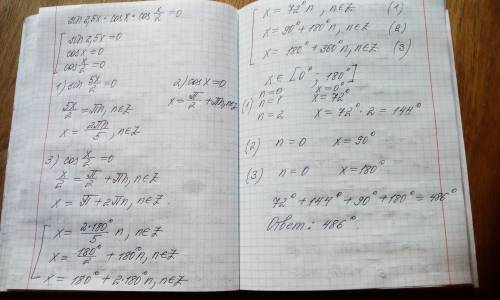 sin 2,5x · cosx · cos x/2 = 0
[ sin 2,5x = 0
cosx = 0
cos x/2 = 0
1) sin 5x/2 = 0
5x/2 = πn, n∈Z
x = 2πn/5, n∈Z
2) cosx = 0
x = π/2 + πn, n∈Z
3) cos x/2 = 0
x/2 = π/2 + πn, n∈Z
x = π + 2πn, n∈Z.
[ x = 2·180°/5 n, n∈Z
x = 180°/2 + 180°n, n∈Z
x = 180° + 2·180°n, n∈Z
[ x = 72°n, n∈Z (1)
x = 90° + 180°n, n∈Z (2)
x = 180° + 360°n, n∈Z (3)
x ∈ [0° ; 180°]
(1) n=0 x=0°
n=1 x=72°
n=2 x=72°·2=144°
(2) n=0 x=90°
(3) n=0 x=180°
72° + 144° + 90° + 180° = 486°
Ответ: 486°.